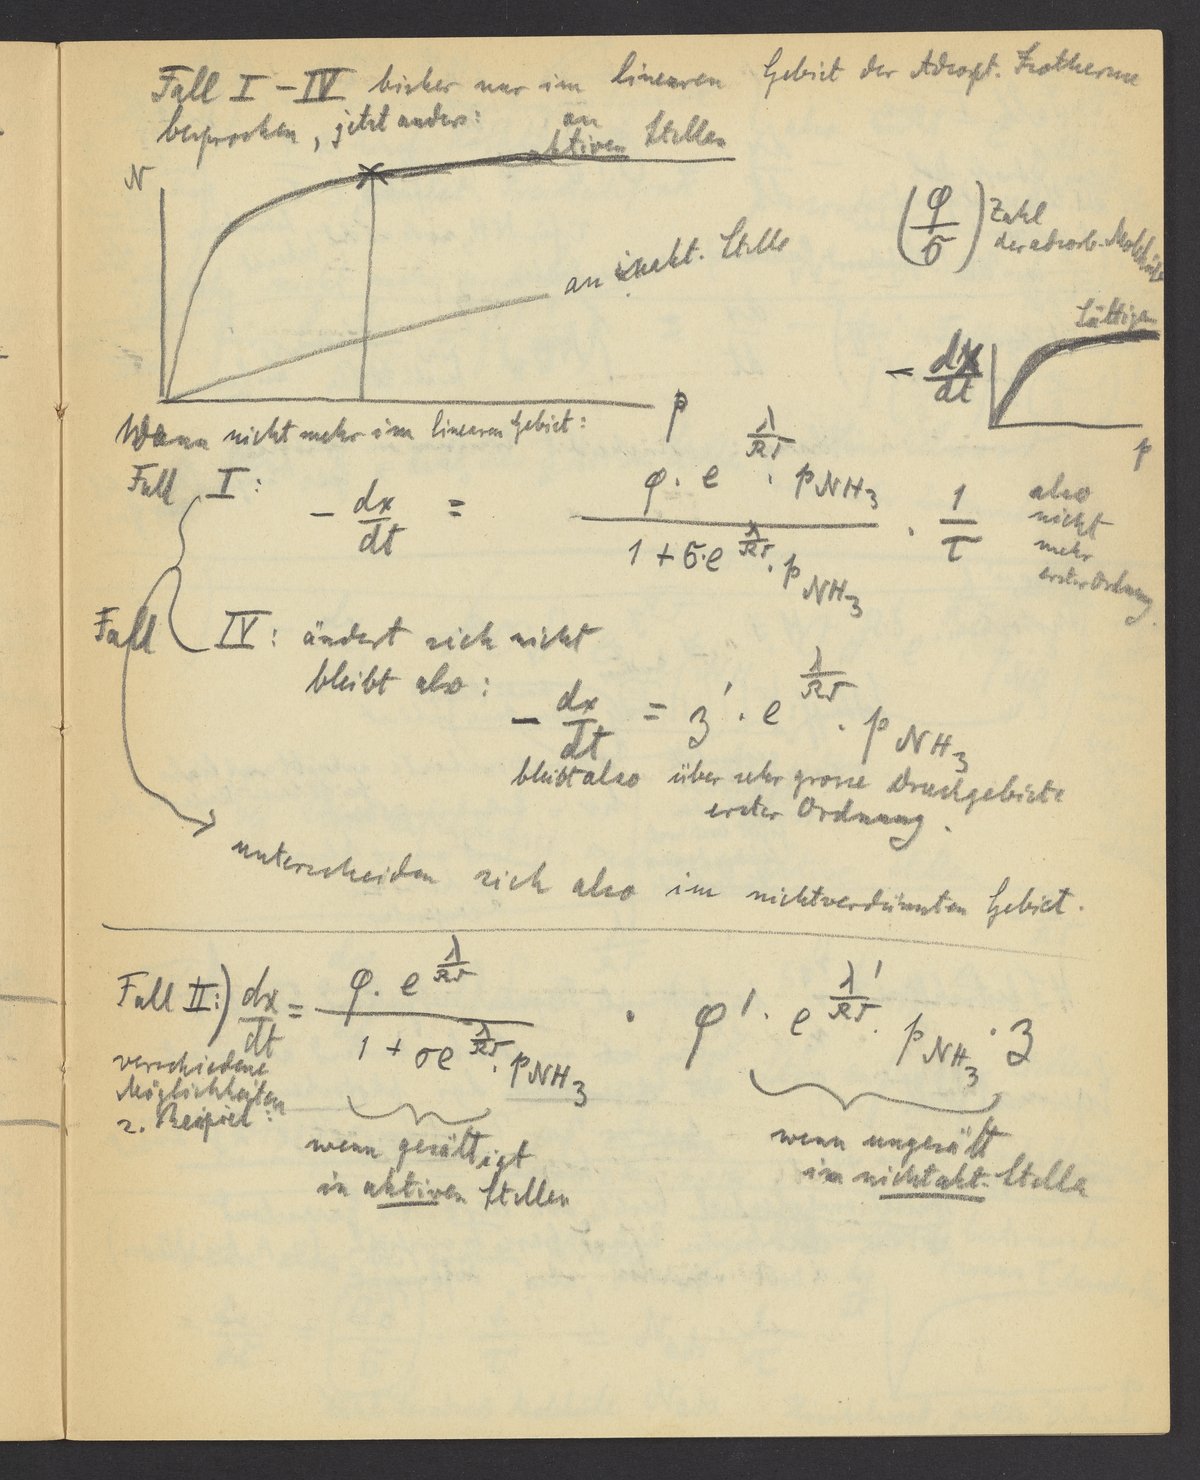 Fall I – IV bisher nur im linearen Gebiet der Adsorpt. Isotherme
besprochen, jetzt anders:
an
aktiven Stellen
N
an inakt. Stelle
(φ/σ) Zahl
der absorb. Moleküle
Sättigun
- dx/dt
p
p
Wenn nicht mehr im linearen Gebiet:
Fall I: - dx/dt = φ · e^(λ/RT) · p_NH3 / (1 + σ·e^(λ/RT) · p_NH3) · 1/τ
also
nicht
mehr
erster Ordnung.
Fall IV: ändert sich nicht
bleibt also:
- dx/dt = z' · e^(λ/RT) · p NH3
bleibt also über sehr grosse Druckgebiete
erster Ordnung.
unterscheiden sich also im nichtverdünnten Gebiet.
Fall II:) dx/dt = φ · e^(λ/RT) / (1 + σe^(λ/RT) · p_NH3) · φ' · e^(λ'/RT) · p_NH3 · z
verschiedene
Möglichkeiten
z. Beispiel:
wenn gesättigt
in aktiven Stellen
wenn ungesätt
im nichtakt. Stelle